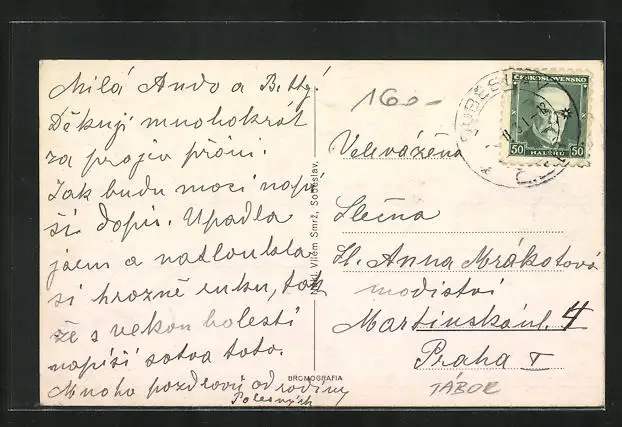 Milá Ando a Betty!
Děkuji mnohokrát
za projev přání.
Jak budu moci napí
ši dopis. Upadla
jsem a natloukla
si hrozně ruku, tak
že s velkou bolestí
napíši sotva toto.
Mnoho pozdravů od rodiny
Polesných
BROMOGRAFIA
Nákl. Vilém Smrž, Soběslav.
160-
ČESKOSLOVENSKO
50 HALÉŘŮ 50
Velevážená
Slečna
Sl. Anna Mrákotová
modiství
Martinská ul. 4
Praha I
TÁBOR